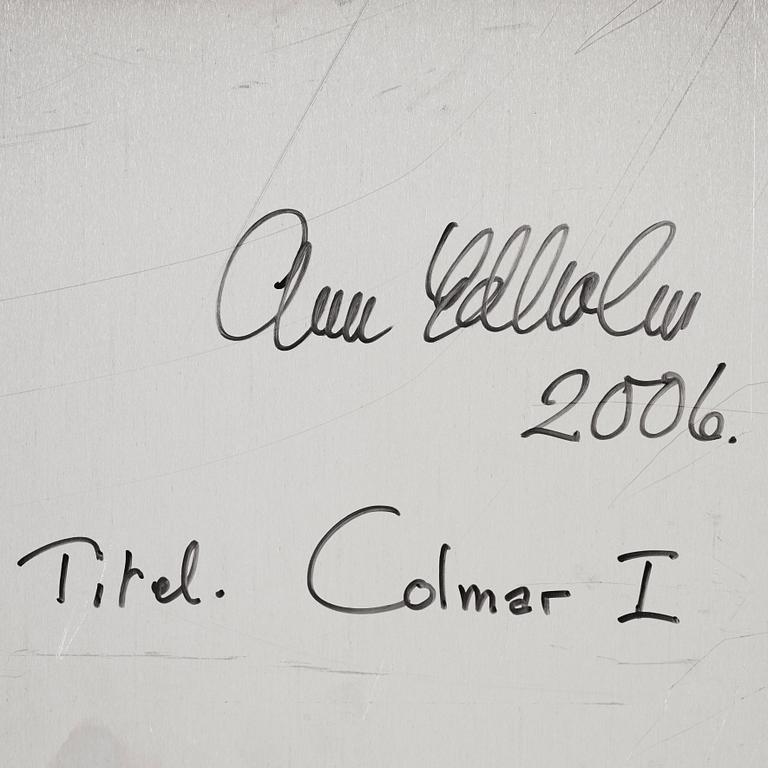 Ann Edholm
2006.
Titel. Colmar I